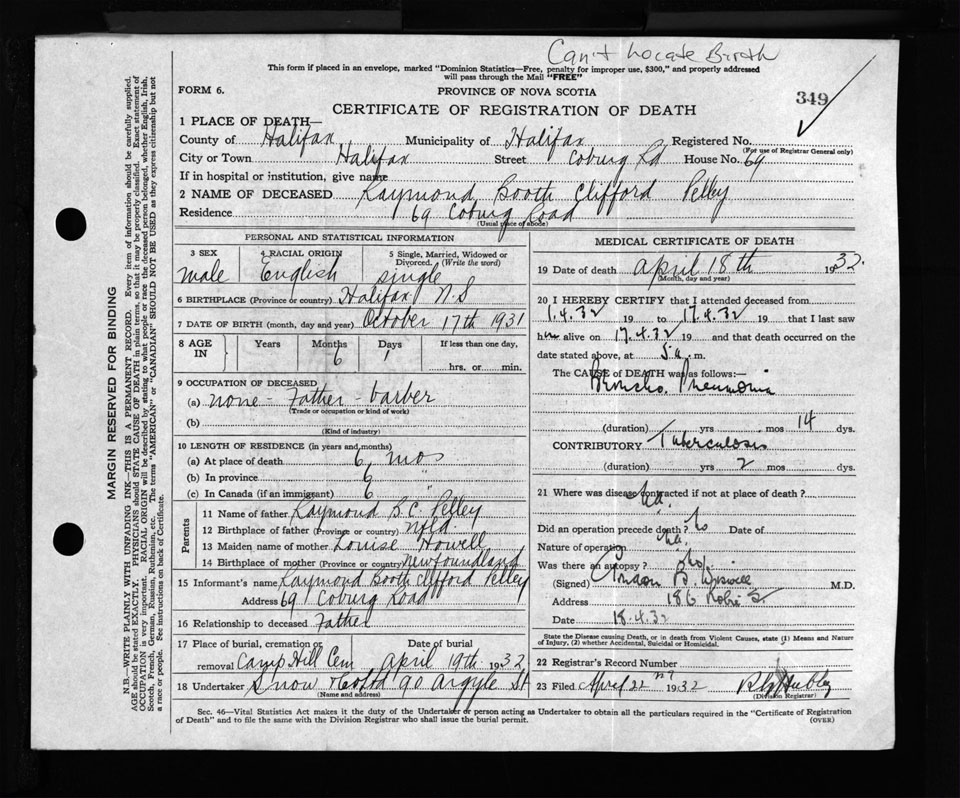 Can't Locate Birth
This form if placed in an envelope, marked "Dominion Statistics—Free, penalty for improper use, $300," and properly addressed
will pass through the Mail "FREE"
FORM 6.
PROVINCE OF NOVA SCOTIA
349
CERTIFICATE OF REGISTRATION OF DEATH
1 PLACE OF DEATH—
County of Halifax Municipality of Halifax Registered No.
(For use of Registrar General only)
City or Town Halifax Street Coburg Rd House No. 69
If in hospital or institution, give name
2 NAME OF DECEASED Raymond Booth Clifford Pelley
Residence 69 Coburg Road
(Usual place of abode)
PERSONAL AND STATISTICAL INFORMATION
3 SEX male
4 RACIAL ORIGIN English
5 Single, Married, Widowed or Divorced. (Write the word) single
6 BIRTHPLACE (Province or country) Halifax N.S
7 DATE OF BIRTH (month, day and year) October 17th 1931
8 AGE IN Years Months 6 Days 1 If less than one day, hrs. or min.
9 OCCUPATION OF DECEASED
(a) none - Father - barber
(Trade or occupation or kind of work)
(b)
(Kind of industry)
10 LENGTH OF RESIDENCE (in years and months)
(a) At place of death 6 mos
(b) In province 6 "
(c) In Canada (if an immigrant) 6 "
Parents
11 Name of father Raymond B.C. Pelley
12 Birthplace of father (Province or country) Nfld.
13 Maiden name of mother Louise Howell
14 Birthplace of mother (Province or country) Newfoundland
15 Informant's name Raymond Booth Clifford Pelley
Address 69 Coburg Road
16 Relationship to deceased Father
17 Place of burial, cremation or removal Camp Hill Cem Date of burial April 19th 1932
18 Undertaker Snow & Co Ltd 90 Argyle St
(Name and address)
MEDICAL CERTIFICATE OF DEATH
19 Date of death April 18th 1932.
(Month, day and year)
20 I HEREBY CERTIFY that I attended deceased from
1.4.32 19 to 17.4.32 19 that I last saw
him alive on 17.4.32 19 and that death occurred on the
date stated above, at 5 a. m.
The CAUSE of DEATH was as follows:—
Broncho Pneumonia
(duration) yrs mos 14 dys.
CONTRIBUTORY Tuberculosis
(duration) yrs 2 mos dys.
21 Where was disease contracted if not at place of death?
Did an operation precede death? No Date of
Nature of operation
Was there an autopsy? No
(Signed) M.D.
Address 186
Date 18.4.32
State the Disease causing Death, or in death from Violent Causes, state (1) Means and Nature
of Injury, (2) whether Accidental, Suicidal or Homicidal.
22 Registrar's Record Number
23 Filed April 22nd 1932
(Division Registrar)
Sec. 46—Vital Statistics Act makes it the duty of the Undertaker or person acting as Undertaker to obtain all the particulars required in the "Certificate of Registration
of Death" and to file the same with the Division Registrar who shall issue the burial permit.
(OVER)
MARGIN RESERVED FOR BINDING
N.B.—WRITE PLAINLY WITH UNFADING INK—THIS IS A PERMANENT RECORD. Every item of information should be carefully supplied.
AGE should be stated EXACTLY. PHYSICIANS should STATE CAUSE OF DEATH in plain terms, so that it may be properly classified. Exact statement of
OCCUPATION is very important. RACIAL ORIGIN will be described by stating to what people or race the deceased person belonged, whether English, Irish,
Scotch, French, German, Russian, Ruthenian, etc. The terms "AMERICAN" or "CANADIAN" SHOULD NOT BE USED as they express citizenship but not
a race or people. See instructions on back of Certificate.